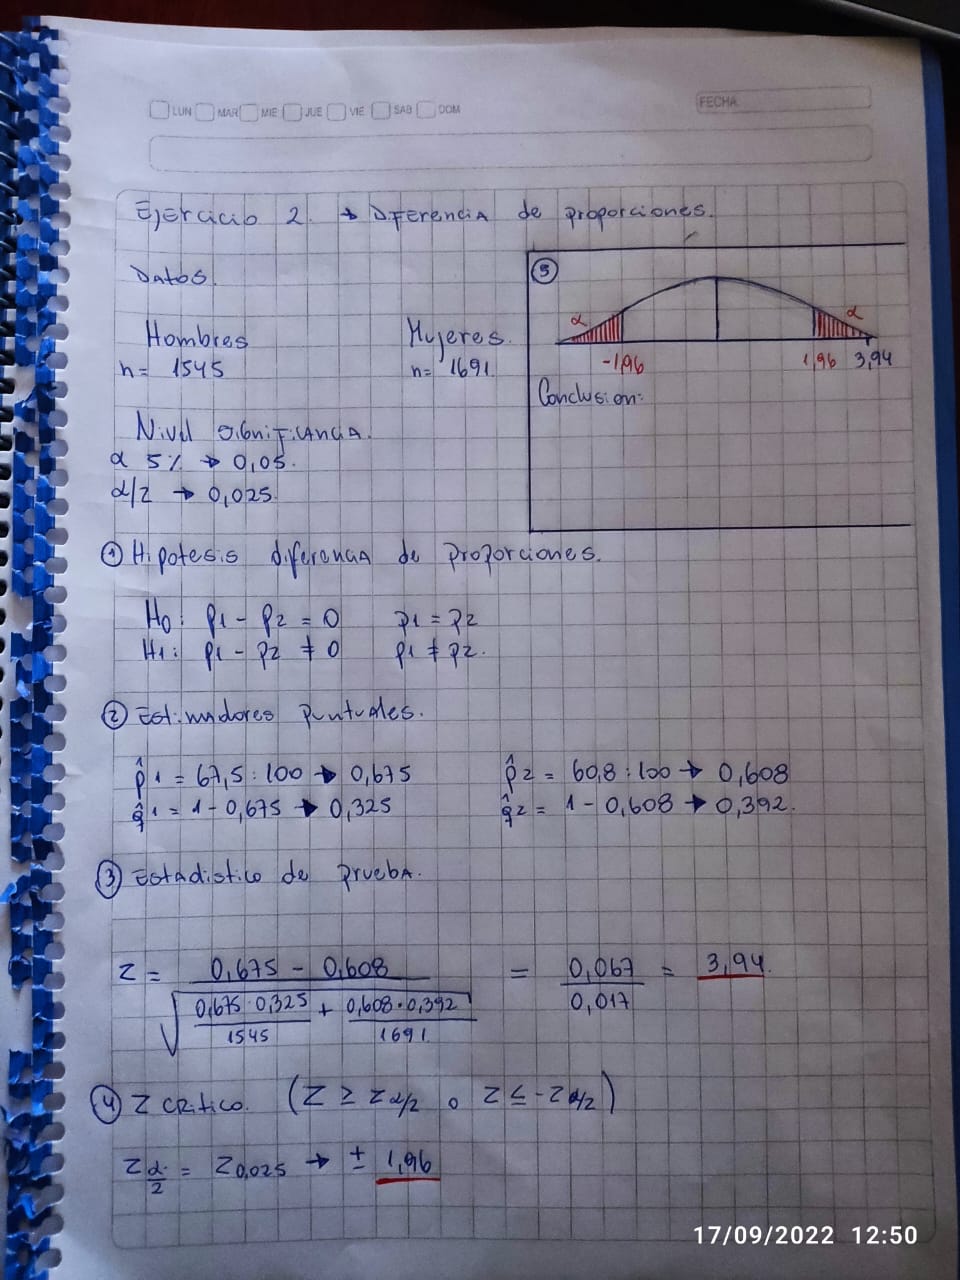 LUN MAR MIE JUE VIE SAB DOM
FECHA
Ejercicio 2. → Diferencia de proporciones.
Datos.
Hombres
n= 1545
Mujeres.
n= 1691
Nivel significancia.
α 5% → 0,05.
α/2 → 0,025
5
α α
-1,96 1,96 3,94
Conclusion:
① Hipotesis diferencia de proporciones.
H0: p1 - p2 = 0 p1 = p2
H1: p1 - p2 ≠ 0 p1 ≠ p2.
② Estimadores puntuales.
p̂1 = 67,5 : 100 → 0,675 p̂2 = 60,8 : 100 → 0,608
q̂1 = 1 - 0,675 → 0,325 q̂2 = 1 - 0,608 → 0,392.
③ Estadistico de prueba.
Z = 0,675 - 0,608 = 0,067 = 3,94.
√ 0,675 · 0,325 + 0,608 · 0,392 0,017
1545 1691
④ Z critico. (Z ≥ Zα/2 o Z ≤ -Zα/2)
Zα/2 = Z0,025 → ± 1,96
17/09/2022 12:50